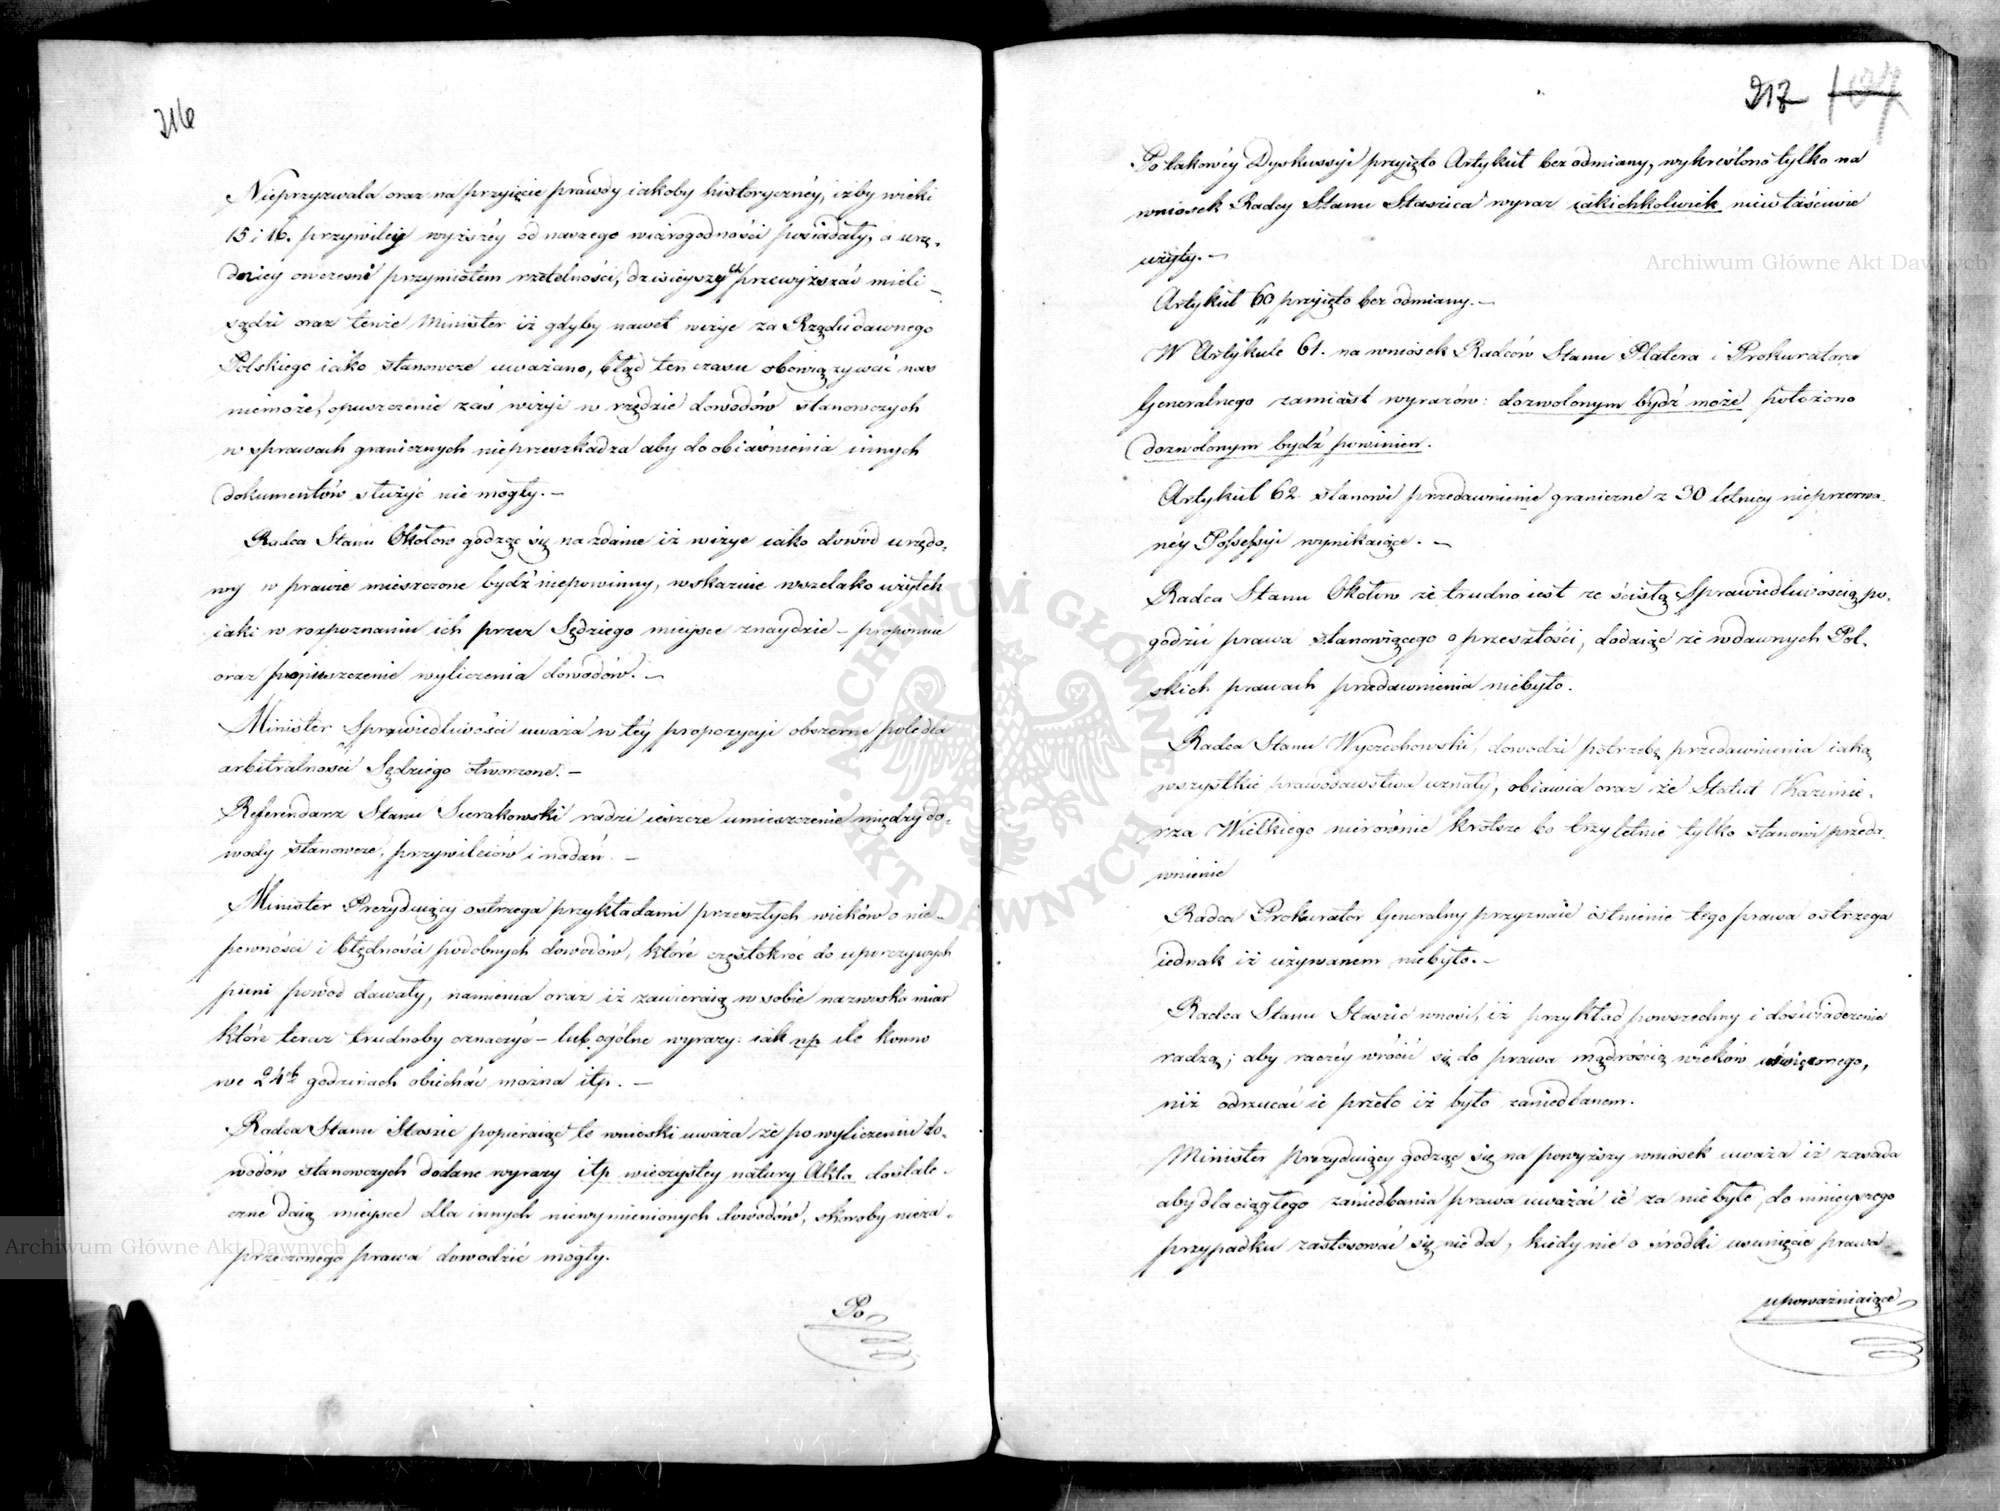 216
Nieprzyzwala oraz na przyięcie prawdy iakoby historycznéy, iżby wieki
15 i 16. przywiley wyższéy od naszego wiarogodności posiadały, a urzę-
dnicy owczesni przymiotem rzetelności, dzisieyszych przewyższać mieli –
sądzi oraz tenże Minister iż gdyby nawet wizye za Rządu dawnego
Polskiego iako stanowcze uważano, błąd ten czasu obowiązywać nas
niemoże, opuszczenie zaś wizyi w rzędzie dowodów stanowczych
w sprawach granicznych nieprzeszkadza aby do obiaśnienia innych
dokumentów służyć nie mogły. –
Radca Stanu Okołow godząc się na zdanie iż wizye iako dowód urzędo-
wy w prawie mieszczone bydź niepowinny, wskazuie wszelako użytek
iaki w rozpoznaniu ich przez Sędziego mieysce znaydzie – proponuie
oraz opuszczenie wyliczenia dowodów. –
Minister Sprawiedliwości uważa w téy propozycyi obszerne pole dla
arbitralności Sędziego otworzone. –
Referendarz Stanu Sierakowski radzi ieszcze umieszczenie między do-
wody stanowcze, przywileiów i nadań. –
Minister Prezyduiący ostrzega przykładami przeszłych wieków o nie-
pewności i błędności podobnych dowodów, które częstokroć do uporczywych
pieni powod dawały, namienia oraz iż zawieraią w sobie nazwiska miar
które teraz trudnoby oznaczyć – lub ogólne wyrazy: iak np ile konno
we 24ch godzinach obiechać można itp. –
Radca Stanu Staszic popieraiąc te wnioski uważa że po wyliczeniu do-
wodów stanowczych dodane wyrazy itp wieczystey natury Akta dostate-
czne daią mieysce dla innych niewymienionych dowodów, skoroby nieza-
przeczonego prawa dowodzić mogły.
Po
217 107
Po takowéy Dyskussyi przyięto Artykuł bez odmiany, wykreślono tylko na
wniosek Radcy Stanu Staszica wyraz iakichkolwiek niewłaściwie
użyty. –
Artykuł 60 przyięto bez odmiany. –
W Artykule 61. na wniosek Radców Stanu Platera i Prokuratora
Generalnego zamiast wyrazów: dozwolonym bydź może położono
dozwolonym bydź powinien.
Artykuł 62. stanowi przedawnienie graniczne z 30 letniey nieprzerwa-
néy Possessyi wynikaiące. –
Radca Stanu Okołow że trudno iest ze ścisłą Sprawiedliwością po-
godzić prawa stanowiącego o przeszłości, dodaiąc że w dawnych Pol-
skich prawach przedawnienia niebyło.
Radca Stanu Wyczechowski, dowodzi potrzebę przedawnienia iaką
wszystkie prawodawstwa uznały, obiawia oraz że Statut Kazimie-
rza Wielkiego nierównie krótsze bo trzyletnie tylko stanowi przeda-
wnienie
Radca Prokurator Generalny przyznaie istnienie tego prawa ostrzega
iednak iż używanem niebyło. –
Radca Stanu Staszic wnosi, iż przykład powszechny i doświadczenie
radzą; aby raczéy wrócić się do prawa mądrością wieków uświęconego,
niż odrzucać ie przeto iż było zaniedbanem.
Minister Prezyduiący godząc się na powyższy wniosek uważa iż zasada
aby dla ciągłego zaniedbania prawa uważać ie za niebyłe, do ninieyszego
przypadku zastosować się nie da, kiedy nie o środki usunięcie prawa
upoważniaiące
ARCHIWUM GŁÓWNE AKT DAWNYCH
Archiwum Główne Akt Dawnych
Archiwum Główne Akt Dawnych